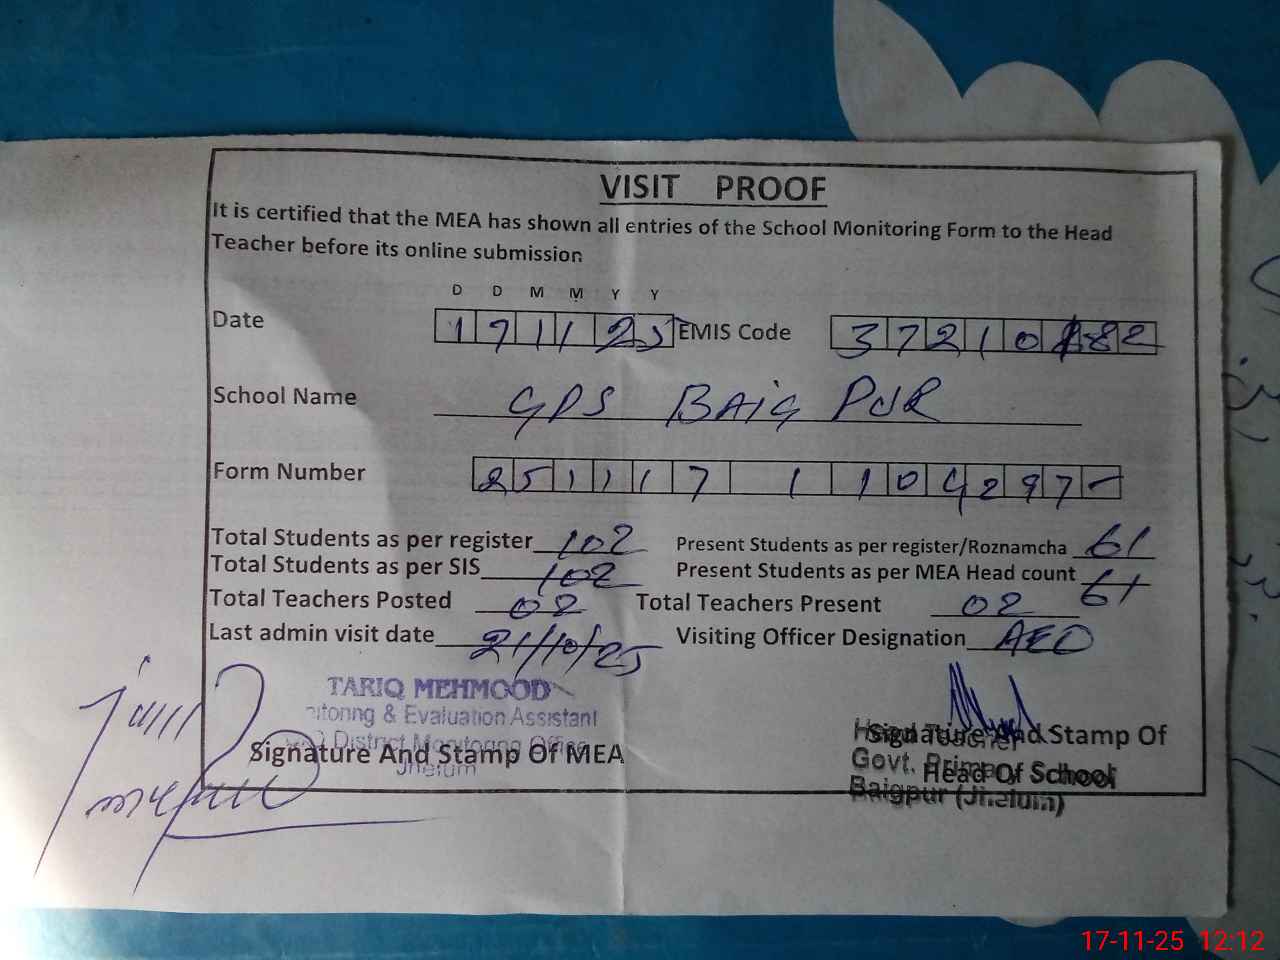 VISIT PROOF
It is certified that the MEA has shown all entries of the School Monitoring Form to the Head
Teacher before its online submission
D D M M Y Y
Date 171125 EMIS Code 37210182
School Name GPS BAIG PUR
Form Number 251117 1 104297-
Total Students as per register 102 Present Students as per register/Roznamcha 61
Total Students as per SIS 102 Present Students as per MEA Head count 61
Total Teachers Posted 02 Total Teachers Present 02
Last admin visit date 21/10/25 Visiting Officer Designation AEO
TARIQ MEHMOOD
nitoring & Evaluation Assistant
District Monitoring Office
Jhelum
Signature And Stamp Of MEA
Signature And Stamp Of
Head Of School
Head Teacher
Govt. Primary School
Baigpur (Jhelum)
17-11-25 12:12